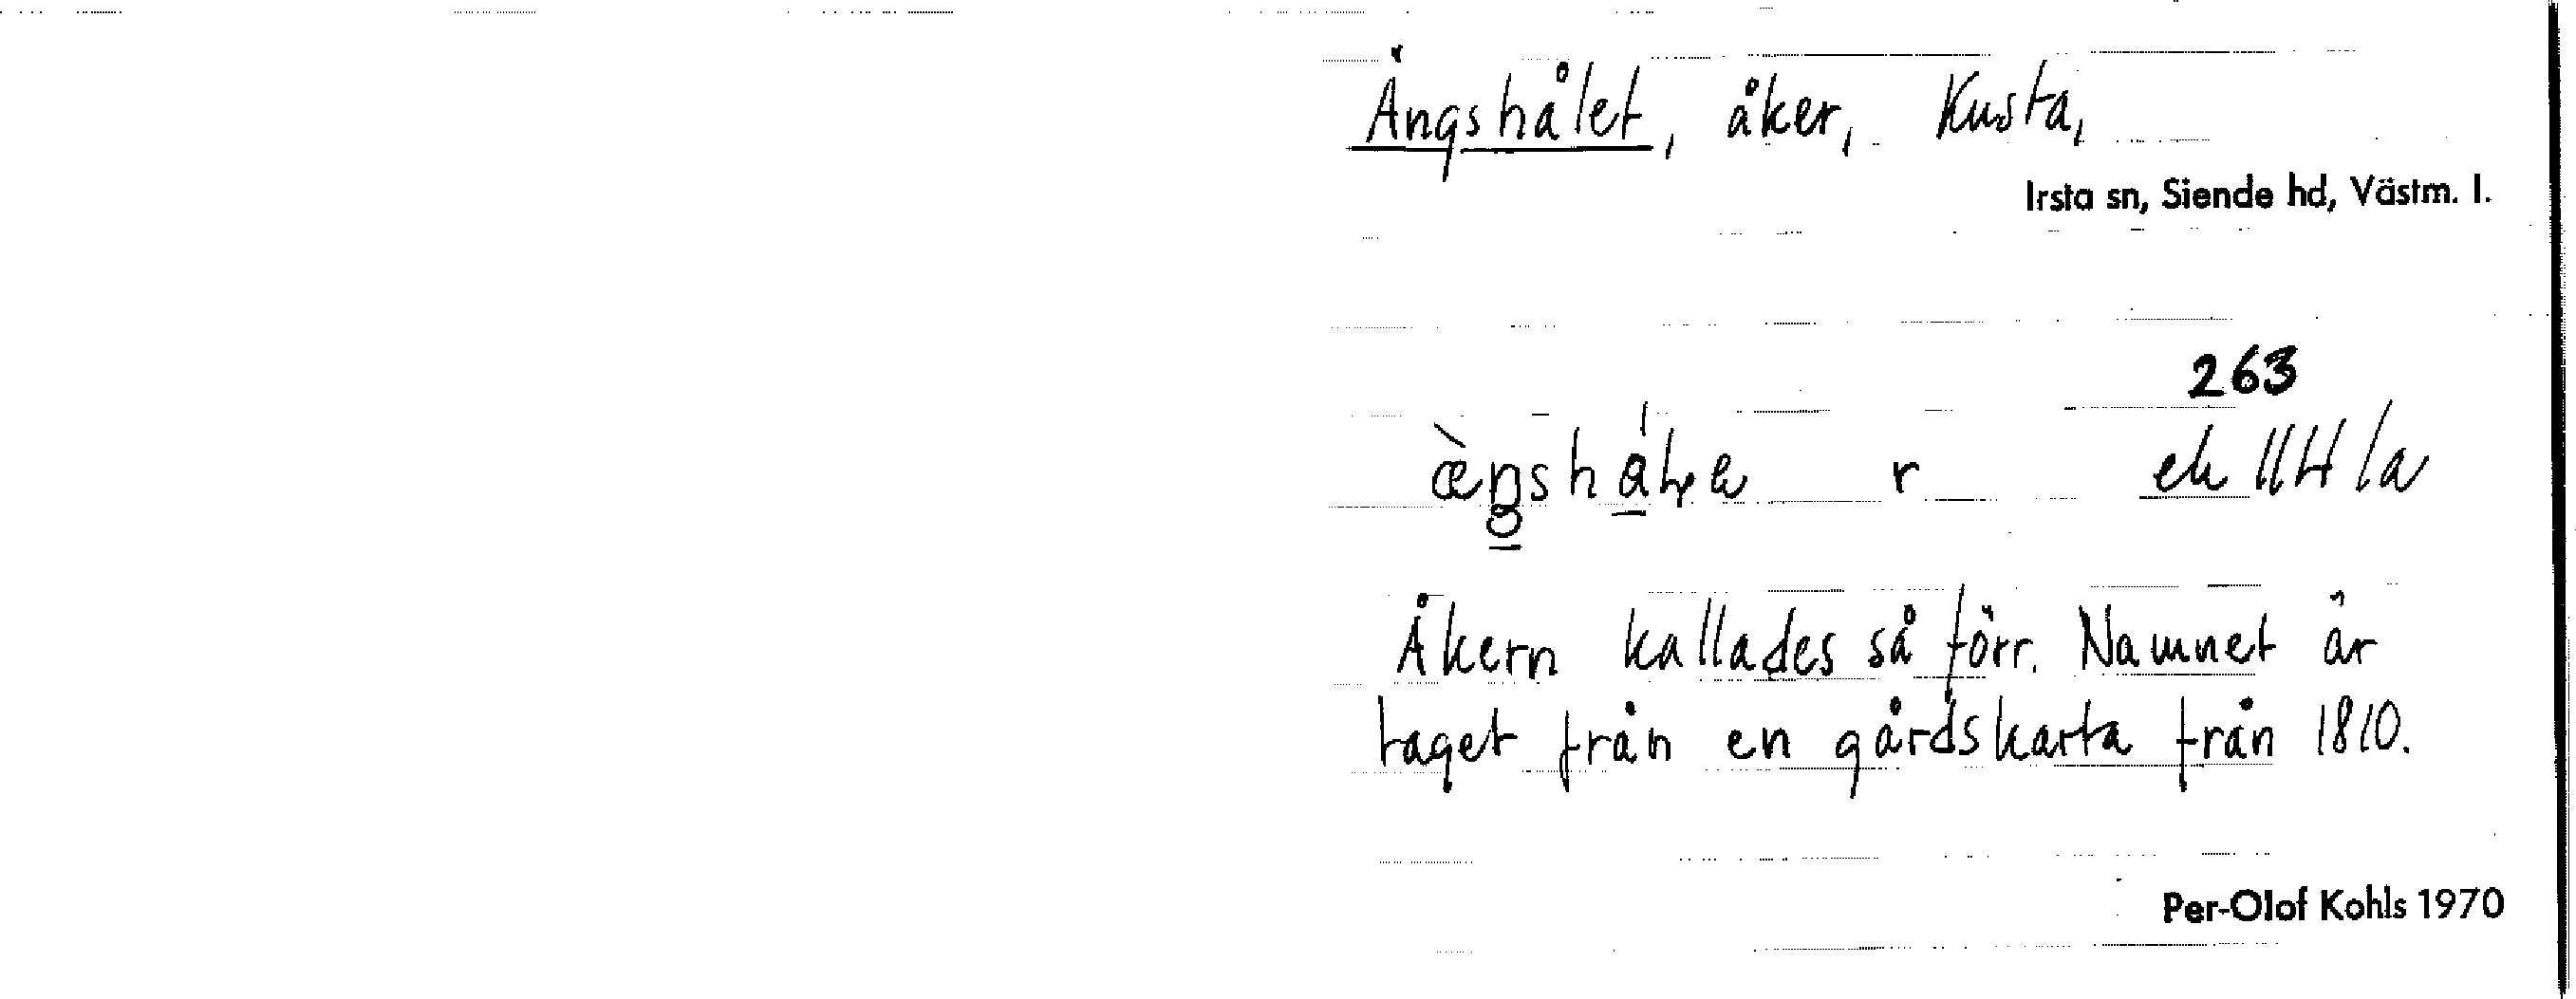 Ängshålet, åker, Kusta,
Irsta sn, Siende hd, Västm. l.
263
r ek 11H 1a
Åkern kallades så förr. Namnet är
taget från en gårdskarta från 1810.
Per-Olof Kohls 1970